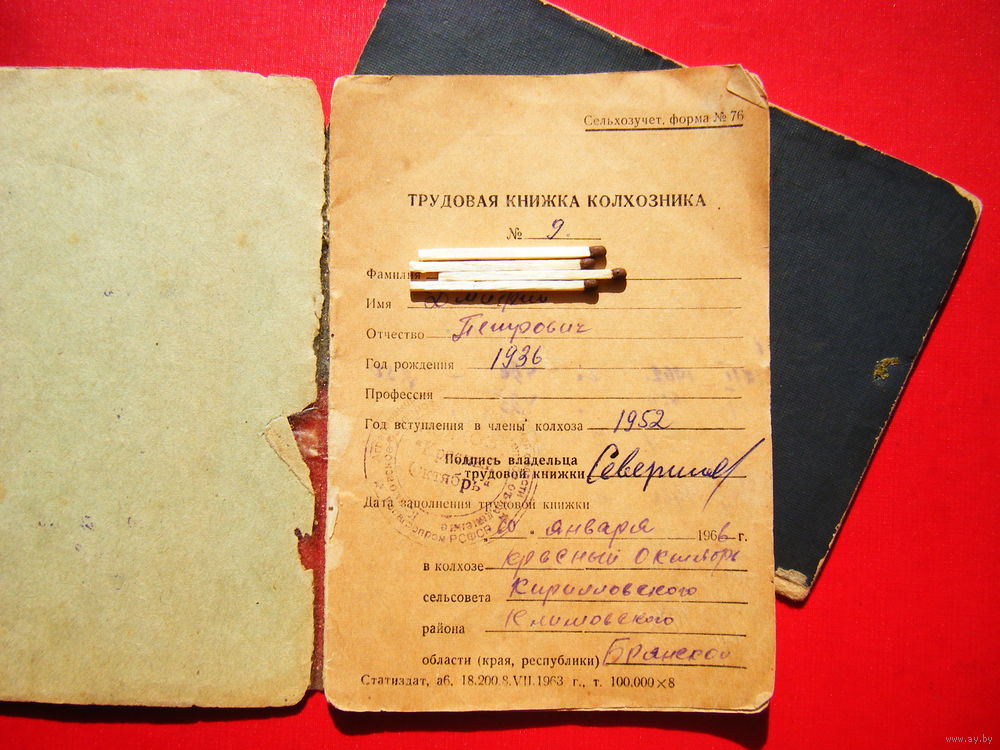 Сельхозучет, форма № 76
ТРУДОВАЯ КНИЖКА КОЛХОЗНИКА
№ 9.
Фамилия
Имя Дмитрий
Отчество Петрович
Год рождения 1936
Профессия
Год вступления в члены колхоза 1952
Подпись владельца
трудовой книжки
Октябрь
РСФСР
Дата заполнения трудовой книжки
января 1966 г.
в колхозе Красный Октябрь
сельсовета Кирилловского
района Климовского
области (края, республики) Брянской
Статиздат, аб, 18.200.8.VII.1963 г., т. 100,000×8
www.ay.by